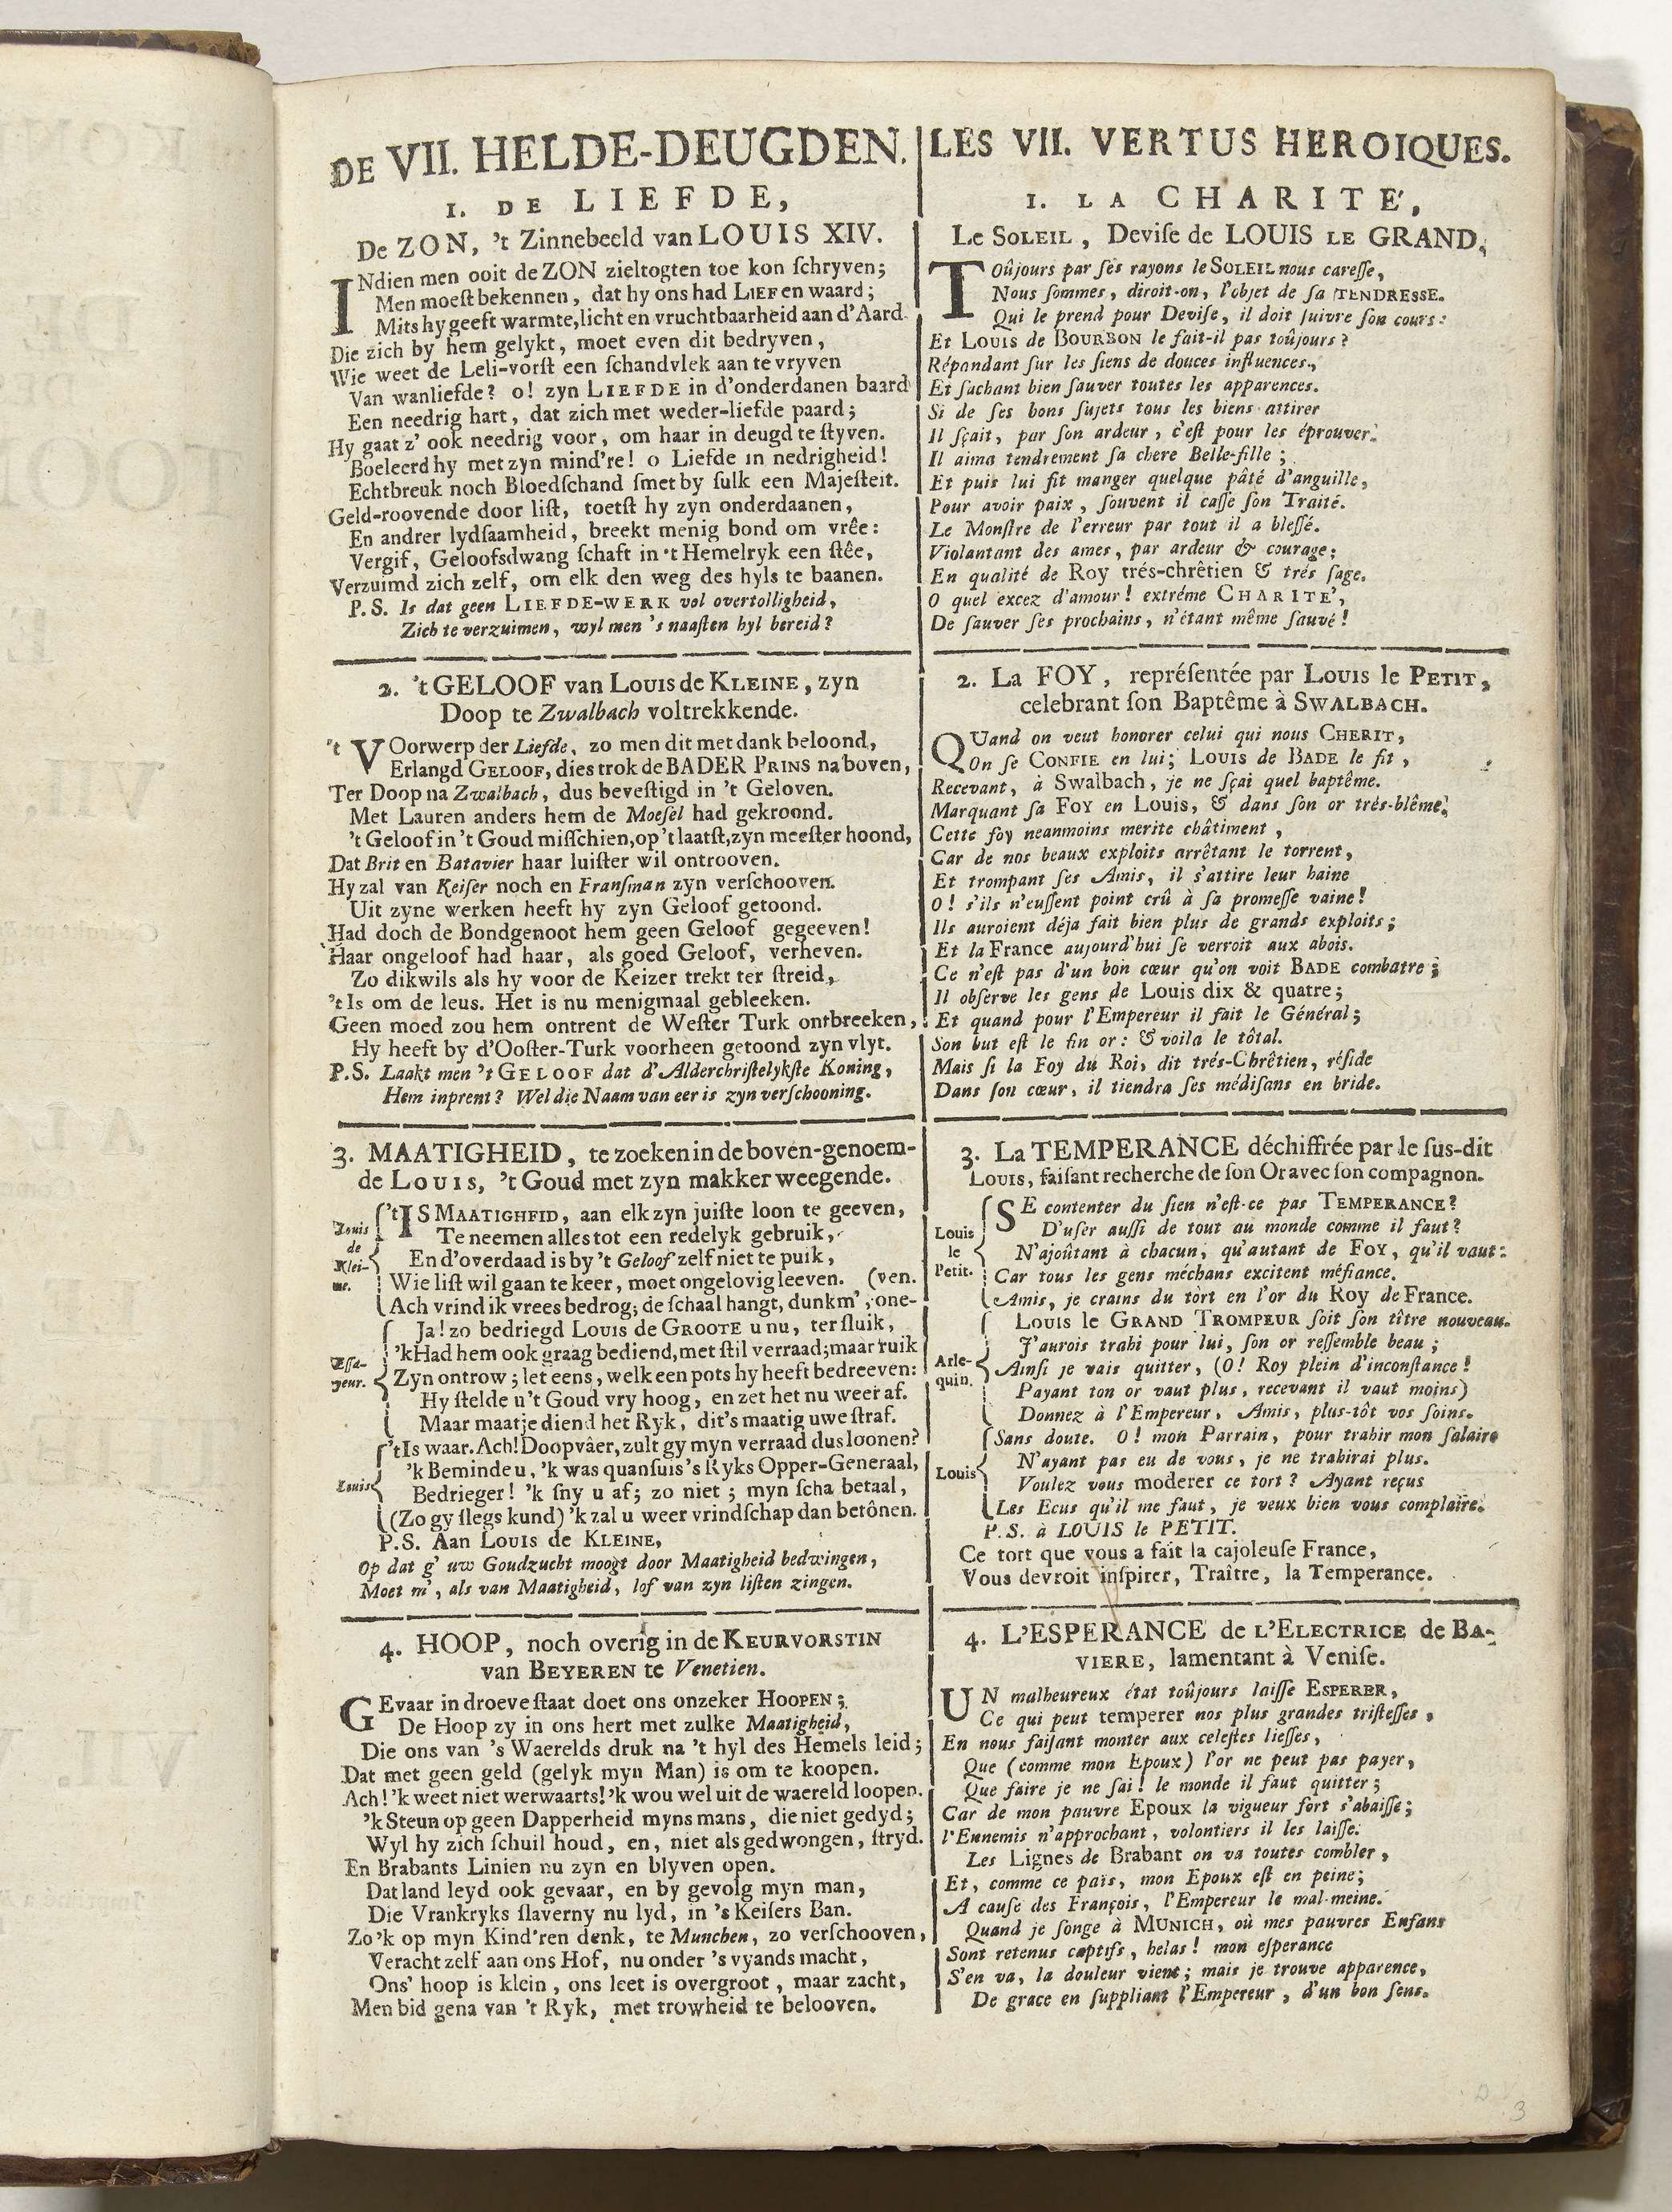 DE VII. HELDE-DEUGDEN.
I. DE LIEFDE,
De ZON, 't Zinnebeeld van LOUIS XIV.
INdien men ooit de ZON zieltogten toe kon ſchryven;
Men moeſt bekennen, dat hy ons had LIEF en waard;
Mits hy geeft warmte, licht en vruchtbaarheid aan d'Aard.
Die zich by hem gelykt, moet even dit bedryven,
Wie weet de Leli-vorſt een ſchandvlek aan te vryven
Van wanliefde? o! zyn LIEFDE in d'onderdanen baard
Een needrig hart, dat zich met weder-liefde paard;
Hy gaat z' ook needrig voor, om haar in deugd te ſtyven.
Boeleerd hy met zyn mind're! o Liefde in nedrigheid!
Echtbreuk noch Bloedſchand ſmet by ſulk een Majeſteit.
Geld-roovende door liſt, toetſt hy zyn onderdaanen,
En andrer lydſaamheid, breekt menig bond om vrêe:
Vergif, Geloofsdwang ſchaft in 't Hemelryk een ſtêe,
Verzuimd zich zelf, om elk den weg des hyls te baanen.
P.S. Is dat geen LIEFDE-WERK vol overtolligheid,
Zich te verzuimen, wyl men 's naaſten hyl bereid?
2. 't GELOOF van LOUIS de KLEINE, zyn
Doop te Zwalbach voltrekkende.
't VOorwerp der Liefde, zo men dit met dank beloond,
Erlangd GELOOF, dies trok de BADER PRINS na boven,
Ter Doop na Zwalbach, dus beveſtigd in 't Geloven.
Met Lauren anders hem de Moeſel had gekroond.
't Geloof in 't Goud miſſchien, op 't laatſt, zyn meeſter hoond,
Dat Brit en Batavier haar luiſter wil ontrooven.
Hy zal van Keiſer noch en Franſman zyn verſchooven.
Uit zyne werken heeft hy zyn Geloof getoond.
Had doch de Bondgenoot hem geen Geloof gegeeven!
Haar ongeloof had haar, als goed Geloof, verheven.
Zo dikwils als hy voor de Keizer trekt ter ſtreid,
't Is om de leus. Het is nu menigmaal gebleeken.
Geen moed zou hem ontrent de Weſter Turk ontbreeken,
Hy heeft by d'Ooſter-Turk voorheen getoond zyn vlyt.
P.S. Laakt men 't GELOOF dat d'Alderchriſtelykſte Koning,
Hem inprent? Wel die Naam van eer is zyn verſchooning.
3. MAATIGHEID, te zoeken in de boven-genoem-
de LOUIS, 't Goud met zyn makker weegende.
Louis de Klei-ne.
't IS MAATIGHEID, aan elk zyn juiſte loon te geeven,
Te neemen alles tot een redelyk gebruik,
En d'overdaad is by 't Geloof zelf niet te puik,
Wie liſt wil gaan te keer, moet ongelovig leeven. (ven.
Ach vrind ik vrees bedrog; de ſchaal hangt, dunkm', one-
Eſſa-geur.
Ja! zo bedriegd LOUIS de GROOTE u nu, ter ſluik,
'k Had hem ook graag bediend, met ſtil verraad; maar 'ruik
Zyn ontrow; let eens, welk een pots hy heeft bedreeven:
Hy ſtelde u 't Goud vry hoog, en zet het nu weer af.
Maar maatje diend het Ryk, dit's maatig uwe ſtraf.
Louis
't Is waar. Ach! Doopvâer, zult gy myn verraad dus loonen?
'k Beminde u, 'k was quanſuis 's Ryks Opper-Generaal,
Bedrieger! 'k ſny u af; zo niet; myn ſcha betaal,
(Zo gy ſlegs kund) 'k zal u weer vrindſchap dan betônen.
P.S. Aan LOUIS de KLEINE,
Op dat g' uw Goudzucht moogt door Maatigheid bedwingen,
Moet m', als van Maatigheid, lof van zyn liſten zingen.
4. HOOP, noch overig in de KEURVORSTIN
van BEYEREN te Venetien.
GEvaar in droeve ſtaat doet ons onzeker HOOPEN;
De Hoop zy in ons hert met zulke Maatigheid,
Die ons van 's Waerelds druk na 't hyl des Hemels leid;
Dat met geen geld (gelyk myn Man) is om te koopen.
Ach! 'k weet niet werwaarts! 'k wou wel uit de waereld loopen.
'k Steun op geen Dapperheid myns mans, die niet gedyd;
Wyl hy zich ſchuil houd, en, niet als gedwongen, ſtryd.
En Brabants Linien nu zyn en blyven open.
Dat land leyd ook gevaar, en by gevolg myn man,
Die Vrankryks ſlaverny nu lyd, in 's Keiſers Ban.
Zo 'k op myn Kind'ren denk, te Munchen, zo verſchooven,
Veracht zelf aan ons Hof, nu onder 's vyands macht,
Ons' hoop is klein, ons leet is overgroot, maar zacht,
Men bid gena van 't Ryk, met trowheid te belooven.
LES VII. VERTUS HEROIQUES.
I. LA CHARITE',
Le SOLEIL, Deviſe de LOUIS LE GRAND,
TOûjours par ſes rayons le SOLEIL nous careſſe,
Nous ſommes, diroit-on, l'objet de ſa TENDRESSE.
Qui le prend pour Deviſe, il doit ſuivre ſon cours:
Et LOUIS de BOURBON le fait-il pas toûjours?
Répandant ſur les ſiens de douces influences,
Et ſachant bien ſauver toutes les apparences.
Si de ſes bons ſujets tous les biens attirer
Il ſçait, par ſon ardeur, c'eſt pour les éprouver.
Il aima tendrement ſa chere Belle-fille;
Et puis lui fit manger quelque pâté d'anguille,
Pour avoir paix, ſouvent il caſſe ſon Traité.
Le Monſtre de l'erreur par tout il a bleſſé.
Violantant des ames, par ardeur & courage;
En qualité de Roy trés-chrêtien & trés ſage.
O quel excez d'amour! extréme CHARITE',
De ſauver ſes prochains, n'étant même ſauvé!
2. La FOY, repréſentée par LOUIS le PETIT,
celebrant ſon Baptême à SWALBACH.
QUand on veut honorer celui qui nous CHERIT,
On ſe CONFIE en lui; LOUIS de BADE le fit,
Recevant, à Swalbach, je ne ſçai quel baptême.
Marquant ſa FOY en Louis, & dans ſon or trés-blême,
Cette foy neanmoins merite châtiment,
Car de nos beaux exploits arrêtant le torrent,
Et trompant ſes Amis, il s'attire leur haine
O! s'ils n'euſſent point crû à ſa promeſſe vaine!
Ils auroient déja fait bien plus de grands exploits;
Et la France aujourd'hui ſe verroit aux abois.
Ce n'eſt pas d'un bon cœur qu'on voit BADE combatre;
Il obſerve les gens de Louis dix & quatre;
Et quand pour l'Empereur il fait le Général;
Son but eſt le fin or: & voila le tôtal.
Mais ſi la Foy du Roi, dit trés-Chrêtien, réſide
Dans ſon cœur, il tiendra ſes médiſans en bride.
3. La TEMPERANCE déchiffrée par le ſus-dit
LOUIS, faiſant recherche de ſon Or avec ſon compagnon.
Louis le Petit.
SE contenter du ſien n'eſt-ce pas TEMPERANCE?
D'uſer auſſi de tout au monde comme il faut?
N'ajoûtant à chacun, qu'autant de FOY, qu'il vaut:
Car tous les gens méchans excitent méfiance.
Amis, je crains du tort en l'or du Roy de France.
Arle-quin.
LOUIS le GRAND TROMPEUR ſoit ſon tître nouveau.
J'aurois trahi pour lui, ſon or reſſemble beau;
Ainſi je vais quitter, (O! Roy plein d'inconſtance!
Payant ton or vaut plus, recevant il vaut moins)
Donnez à l'Empereur, Amis, plus-tôt vos ſoins.
Louis
Sans doute. O! mon Parrain, pour trahir mon ſalaire
N'ayant pas eu de vous, je ne trahirai plus.
Voulez vous moderer ce tort? Ayant reçus
Les Ecus qu'il me faut, je veux bien vous complaire.
P.S. à LOUIS le PETIT.
Ce tort que vous a fait la cajoleuſe France,
Vous devroit inſpirer, Traître, la Temperance.
4. L'ESPERANCE de L'ELECTRICE de BA-
VIERE, lamentant à Veniſe.
UN malheureux état toûjours laiſſe ESPERER,
Ce qui peut temperer nos plus grandes triſteſſes,
En nous faiſant monter aux celeſtes lieſſes,
Que (comme mon Epoux) l'or ne peut pas payer,
Que faire je ne ſai! le monde il faut quitter;
Car de mon pauvre Epoux la vigueur fort s'abaiſſe;
l'Ennemis n'approchant, volontiers il les laiſſe.
Les Lignes de Brabant on va toutes combler,
Et, comme ce païs, mon Epoux eſt en peine;
A cauſe des François, l'Empereur le mal-meine.
Quand je ſonge à MUNICH, où mes pauvres Enfans
Sont retenus captifs, helas! mon eſperance
S'en va, la douleur vient; mais je trouve apparence,
De grace en ſuppliant l'Empereur, d'un bon ſens.
3